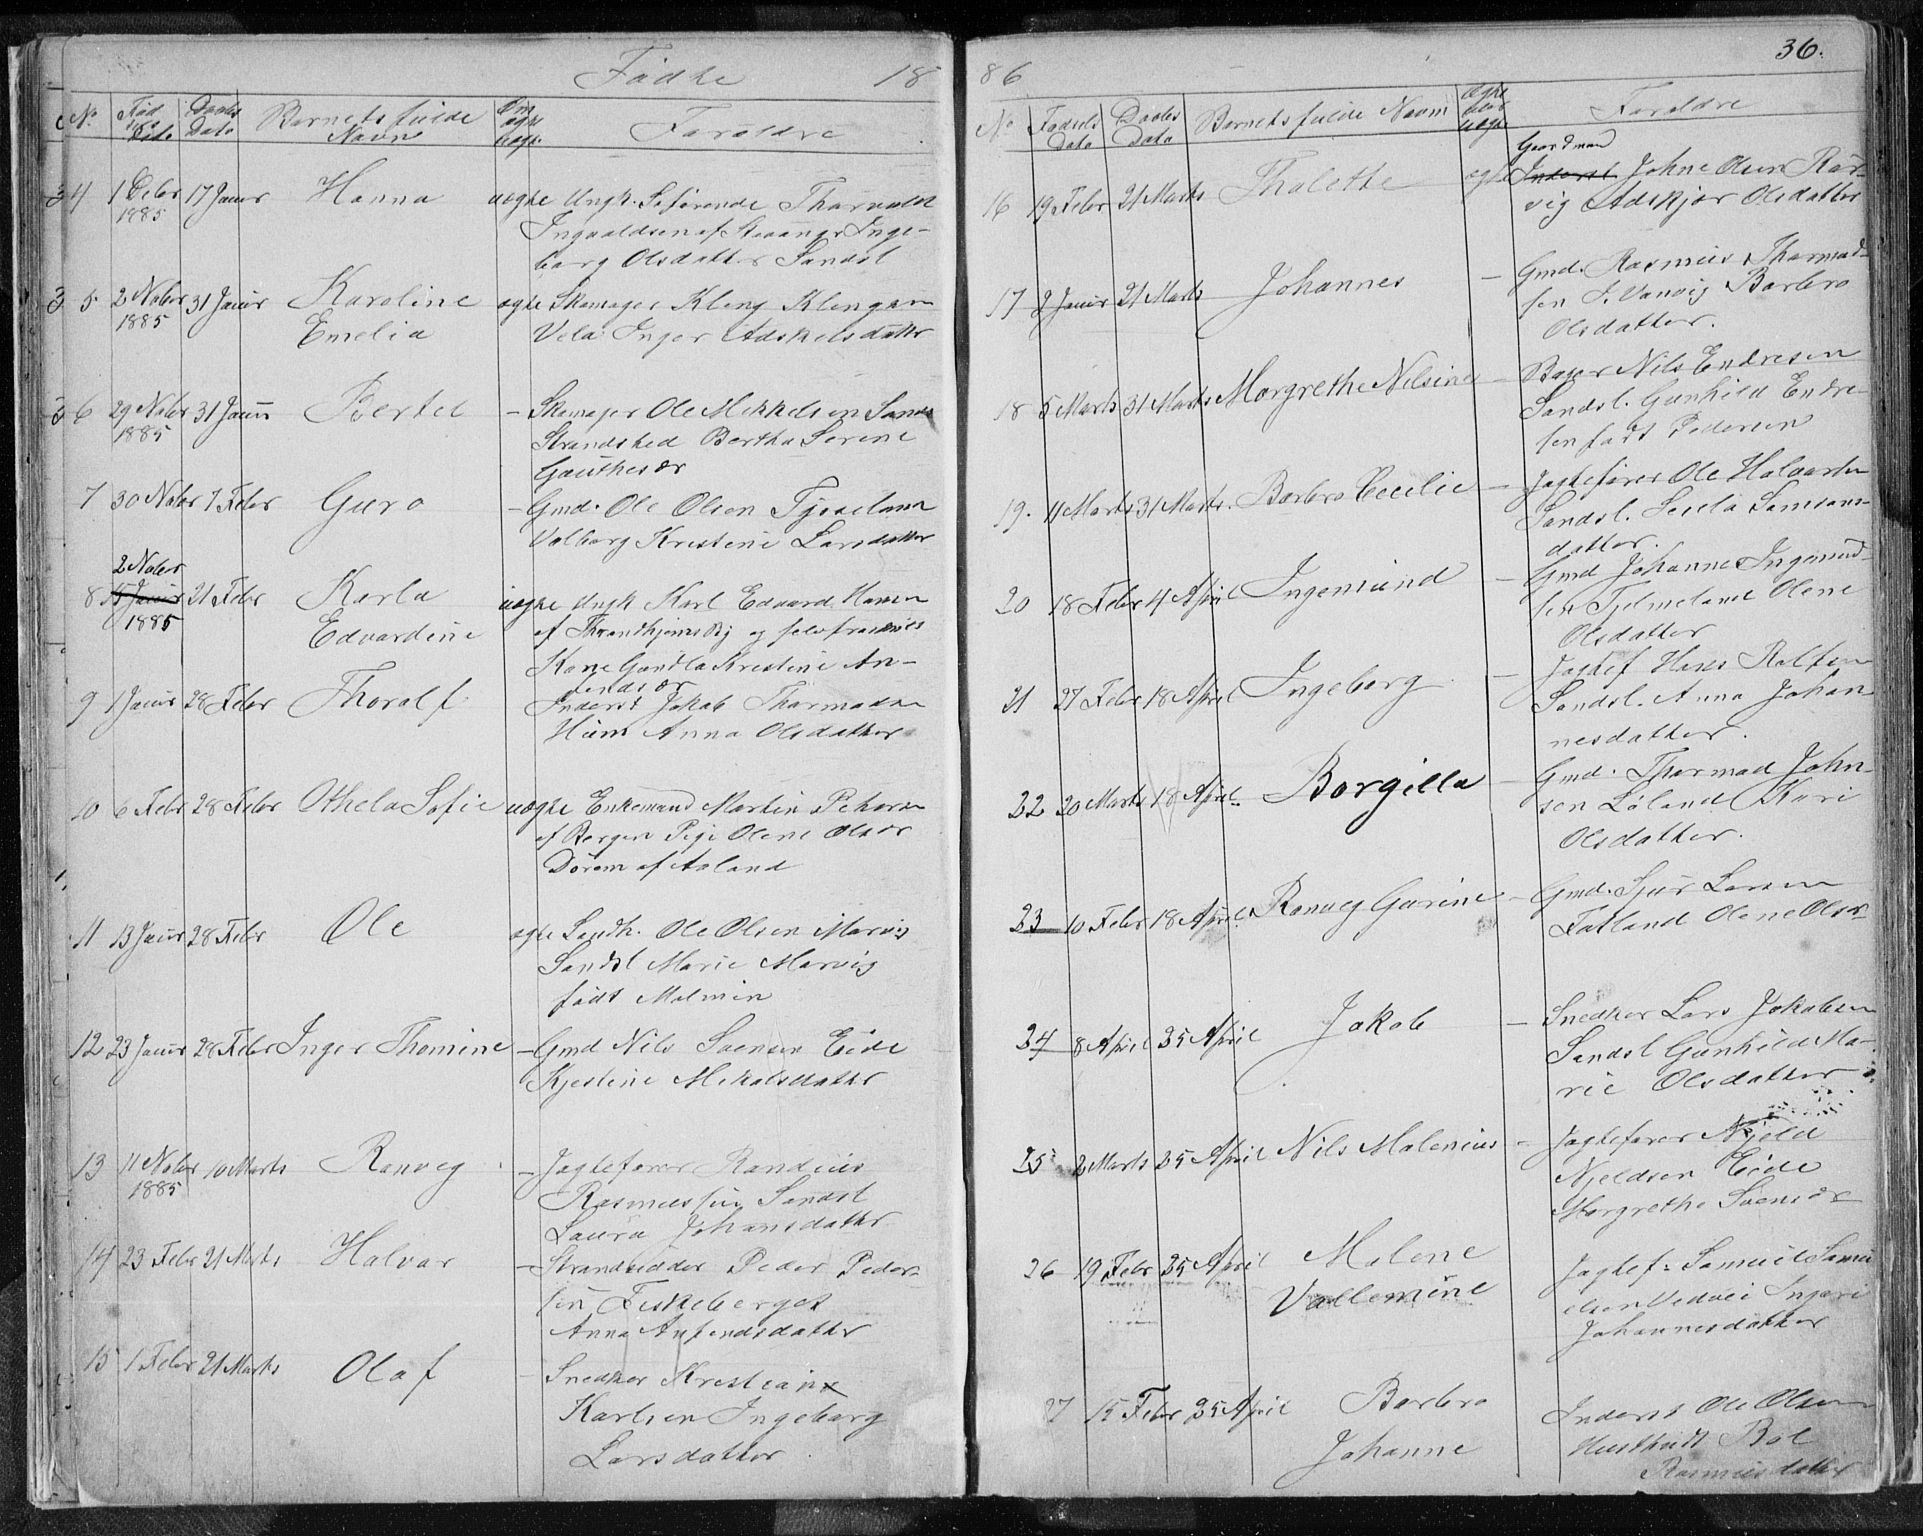 Fødte 18
No Fød Dato Daabs Dato Barnets fulde Navn Om ægte uægt. Forældre
4 1 Debr 1885 17 Janr Hanna uægte Ungk. Søfarende Thorvald
Ingvaldsen af Stavanger Inge-
borg Olsdatter Sandsl
5 2 Nobr 1885 31 Janr Karoline Emelia ægte Skomager Kleng Klengsen
Vela Inger Adskelsdattr
6 29 Nobr 1885 31 Janr Bertel - Skomager Ole Mikkelsen Sands
Strandsted Bertha Serine
Gauthesdr
7 30 Nobr 7 Febr Guro - Gmd. Ole Olsen Tjeseland
Valborg Kristine Larsdatter
8 2 Nobr 15 Janr 1885 21 Febr Karla Edvardine uægte Ungk Karl Edvard Hansen
af Throndhjems By og
Kone Gundla Kristine An-
fendsdr
9 1 Janr 28 Febr Thoralf Inderst Jakob Thormodsen
Hiim Anna Olsdatter
10 6 Febr 28 Febr Othela Sofie uægte Enkemand Martin
af Bergen Pige Olene Olsdr
af Aaland
11 13 Janr 28 Febr Ole ægte Landh. Ole Olsen Marvig
Sandsl Marie Marvig
født Malmin
12 23 Janr 28 Febr Inger Thomine - Gmd Nils Svensen Eide
Kjestine Mikalsdattr
13 11 Nobr 1885 10 Marts Ranveg - Jagtefører Randius
Rasmussen Sandsl
Laura Johansdattr
14 23 Febr 21 Marts Halvar - Strandsidder Peder Peder-
sen Fiskeberget
Anna Anfendsdattr
15 1 Febr 21 Marts Olaf - Snedker Kristian
Karlsen Ingeborg
Larsdatter
86 36.
No Fødsels Dato Daabs Dato Barnets fulde Navn Ægte eller uægte Forældre
16 19 Febr 21 Marts Thalette ægte Gaardmand Inderst Johne Olsen Rar-
vig Adskjær Olsdatter
17 2 Janr 21 Marts Johannes - Gmd. Rasmus Thormod-
sen S. Vanvig Barbro
Olsdatter.
18 5 Marts 31 Marts Margrethe Nilsine - Bager Nils Endresen
Sandsl. Gunhild Endre-
sen født Pedersen
19. 11 Marts 31 Marts. Barbro Cecilie - Jagtefører Ole Halvorsen
Sandsl. Sesela Samsons-
datter.
20 18 Febr 4 April Ingemund - Gmd Johannes Ingemund-
sen Tjelmeland Olene
Olsdatter
21 27 Febr 18 April Ingeborg - Jagtef Hans Ralfsen
Sandsl. Anna Johan-
nesdatter.
22 20 Marts 18 April. Borgilla - Gmd. Thormod John-
sen Løland Kari
Olsdatter.
23 10 Febr 18 April. Ranveg Gurine - Gmd. Sjur Larsen
Fatland Olene Olsdr
24 8 April 25 April Jakob - Snedker Lars Jakobsen
Sandsl Gunhild Ma-
rie Olsdatter
25 2 Marts 25 April Nils Malenius - Jagtefører Njeld
Njeldsen Eide
Margrethe Svensdr
26 19 Febr 25 April Malene Vallemine Jagtef. Samuel Samu
elsen Vedvei Ingeri
Johannesdatter
27 15 Febr 25 April Barbro Johanne Inderst Ole Olsen
Hustveit Bol
Rasmusdatter